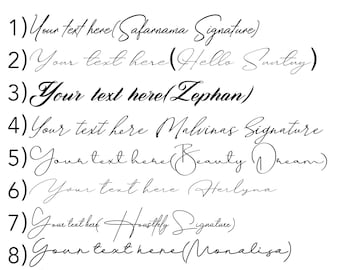 1) Your text here(Safarnama Signature)
2) Your text here(Hello Santuy)
3) Your text here(Zephan)
4) Your text here Malvinas Signature
5) Your text here(Beauty Dream)
6) Your text here Herlyna
7) Your text here( Housttely Signature)
8) Your text here(Monalisa)